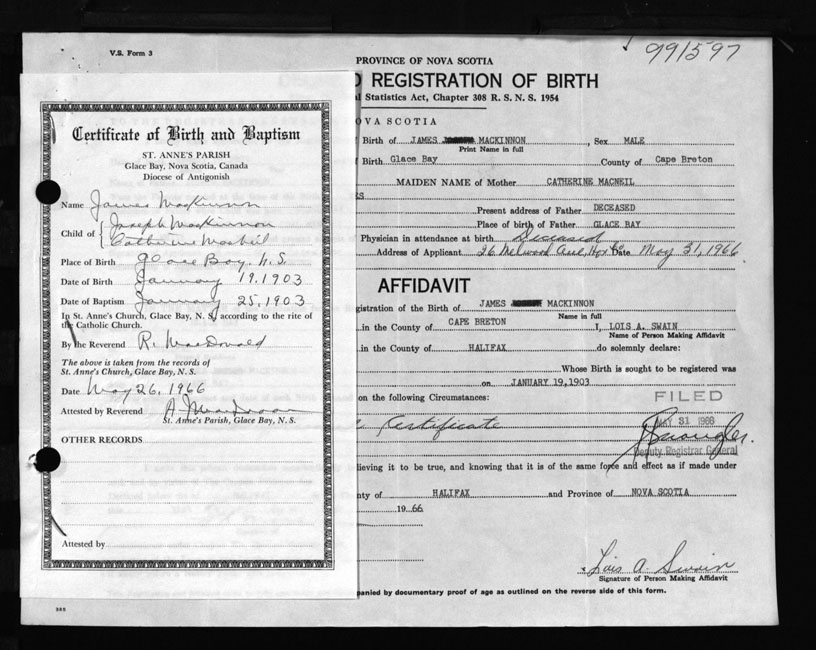 V.S. Form 3
991597
PROVINCE OF NOVA SCOTIA
D REGISTRATION OF BIRTH
l Statistics Act, Chapter 308 R. S. N. S. 1954
OVA SCOTIA
f Birth of JAMES MACKINNON, Sex MALE
Print Name in full
f Birth Glace Bay County of Cape Breton
MAIDEN NAME of Mother CATHERINE MACNEIL
ES
Present address of Father DECEASED
Place of birth of Father GLACE BAY
Physician in attendance at birth Deceased
Address of Applicant 26 Melwood Ave, Hfx Date May 31, 1966
AFFIDAVIT
gistration of the Birth of JAMES MACKINNON
Name in full
in the County of CAPE BRETON I, LOIS A. SWAIN
Name of Person Making Affidavit
in the County of HALIFAX do solemnly declare:
Whose Birth is sought to be registered was
on JANUARY 19,1903
on the following Circumstances:
FILED
MAY 31 1966
Certificate
Deputy Registrar General
lieving it to be true, and knowing that it is of the same force and effect as if made under
ty of HALIFAX and Province of NOVA SCOTIA
19 66
Lois A. Swain
Signature of Person Making Affidavit
panied by documentary proof of age as outlined on the reverse side of this form.
Certificate of Birth and Baptism
ST. ANNE'S PARISH
Glace Bay, Nova Scotia, Canada
Diocese of Antigonish
Name James MacKinnon
Child of { Joseph MacKinnon
Catherine MacNeil
Place of Birth Glace Bay, N.S.
Date of Birth January 19, 1903
Date of Baptism January 25, 1903
In St. Anne's Church, Glace Bay, N. S., according to the rite of
the Catholic Church.
By the Reverend R. MacDonald
The above is taken from the records of
St. Anne's Church, Glace Bay, N. S.
Date May 26, 1966
Attested by Reverend
St. Anne's Parish, Glace Bay, N. S.
OTHER RECORDS
Attested by